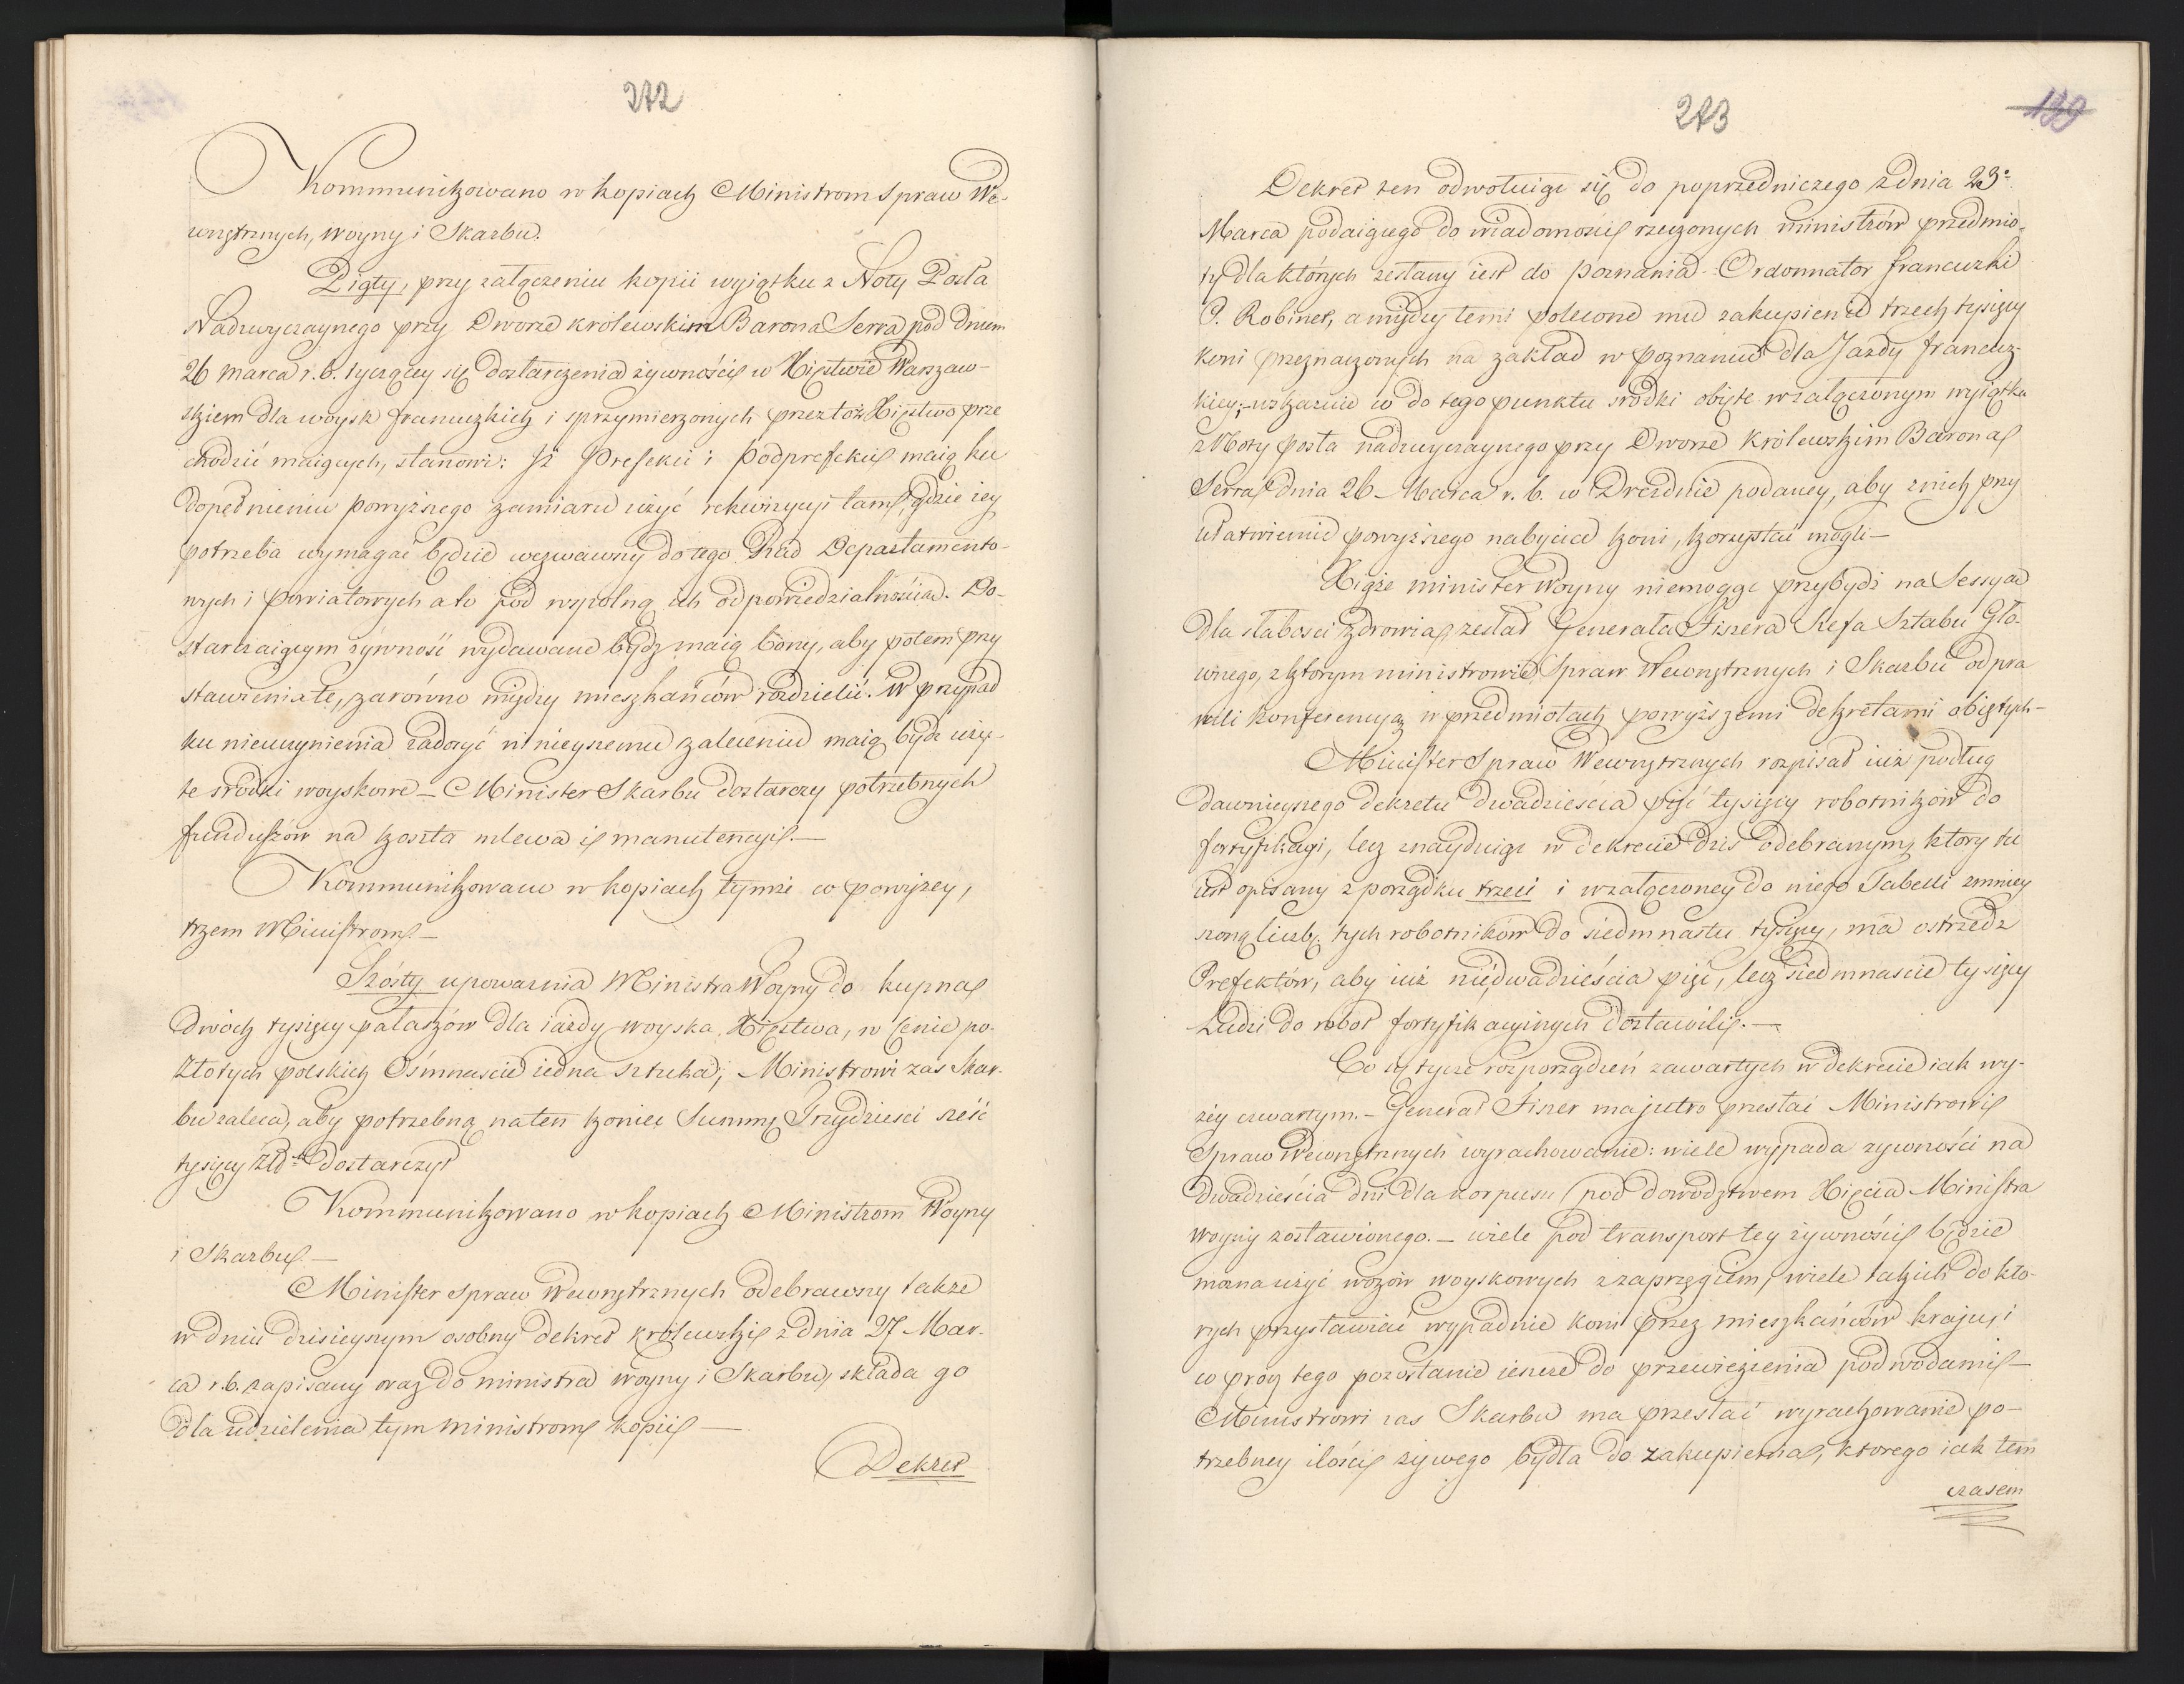 272
Kommunikowano w kopiach Ministrom Spraw We-
wnętrznych, Woyny i Skarbu.
Piąty, przy załączeniu kopii wyiątku z Noty Posła
Nadzwyczaynego przy Dworze królewskim Barona Serra pod dniem
26 marca r. b. tyczący się dostarczenia żywności w Xięstwie Warszaw-
skiem dla woysk francuzkich i sprzymierzonych przez toż Xięstwo prze
chodzić maiących, stanowi: Iż Prefekci i Podprefekci maią ku
dopełnieniu powyższego zamiaru użyć rekwizycyi tam, gdzie iey
potrzeba wymagać będzie wezwawszy do tego Rad Departamento-
wych i Powiatowych a to pod wspólną ich odpowiedzialnością. Do-
starczaiącym żywność wydawane bydź maią bony, aby potem przy
stawienia te, zarówno między mieszkańców rozdzielić. W przypad
ku nieuczynienia zadosyć ninieyszemu zaleceniu maią bydź uży-
te srodki woyskowe – Minister Skarbu dostarczy potrzebnych
funduszów na koszta mlewa i manutencyi. –
Kommunikowano w kopiach tymże co powyżey,
trzem Ministrom. –
Szósty upoważnia Ministra Woyny do kupna
dwóch tysięcy pałaszów dla iazdy woyska Xięstwa, w cenie po-
złotych polskich Ośmnascie iedna sztuka; Ministrowi zas Skar-
bu zaleca, aby potrzebną na ten koniec Summę Trzydziesci sześć
tysięcy Złp. dostarczył
Kommunikowano w kopiach Ministrom Woyny
i Skarbu. –
Minister Spraw Wewnętrznych odebrawszy także
w dniu dzisieyszym osobny dekret królewski z dnia 27 Mar-
ca r. b. zapisany oraz do ministra woyny i Skarbu, składa go
dla udzielenia tym ministrom kopii –
Dekret
273
139
Dekret ten odwołuiąc się do poprzedniczego z dnia 23º
Marca podaiącego do wiadomości rzeczonych ministrów przedmio-
ty dla których zesłany iest do Poznania Ordonnator francuzki
P. Robinet, a między temi polecone mu zakupienie trzech tysięcy
koni przeznaczonych na zakład w Poznaniu dla Jazdy francuz-
kiey; wskazuie co do tego punktu srodki obięte w załączonym wyiątku
z Noty posła nadzwyczaynego przy Dworze Królewskim Barona
Serra dnia 26 Marca r. b. w Dreznie podaney, aby z nich przy
ułatwieniu powyższego nabycia koni, korzystać mogli –
Xiąże minister Woyny niemogąc przybydź na Sessyą
dla słabosci zdrowia, zesłał Generała Fiszera Szefa Sztabu Głó-
wnego, z którym ministrowie Spraw Wewnętrznych i Skarbu odpra
wili konferencyą w przedmiotach powyższemi dekretami obiętych –
Minister Spraw Wewnętrznych rozpisał iuż podług
dawnieyszego dekretu dwadziescia pięć tysięcy robotników do
fortyfikacyi, lecz znayduiąc w dekrecie dzis odebranym, który tu
iest opisany z porządku trzeci i w załączoney do niego Tabelli zmniey
szoną liczbę tych robotników do siedmnastu tysięcy, ma ostrzedz
Prefektów, aby iuż nie dwadzieścia pięć, lecz siedmnascie tysięcy
Ludzi do robot fortyfikacyinych dostawili. –
Co się tycze rozporządzeń zawartych w dekrecie iak wy-
żey czwartym. – Generał Fiszer ma jutro przesłać Ministrowi
Spraw Wewnętrznych wyrachowanie: wiele wypada żywności na
dwadzieścia dni dla korpusu pod dowództwem Xięcia Ministra
woyny zostawionego. – wiele pod transport tey żywności będzie
można użyć wozów woyskowych z zaprzęgiem, wiele takich do któ-
rych przystawiać wypadnie koni przez mieszkańców kraju, i
co prócz tego pozostanie ieszcze do przewiezienia podwodami –
Ministrowi zas Skarbu ma przesłać wyrachowanie po-
trzebney ilości żywego bydła do zakupienia, którego iak tem
czasem